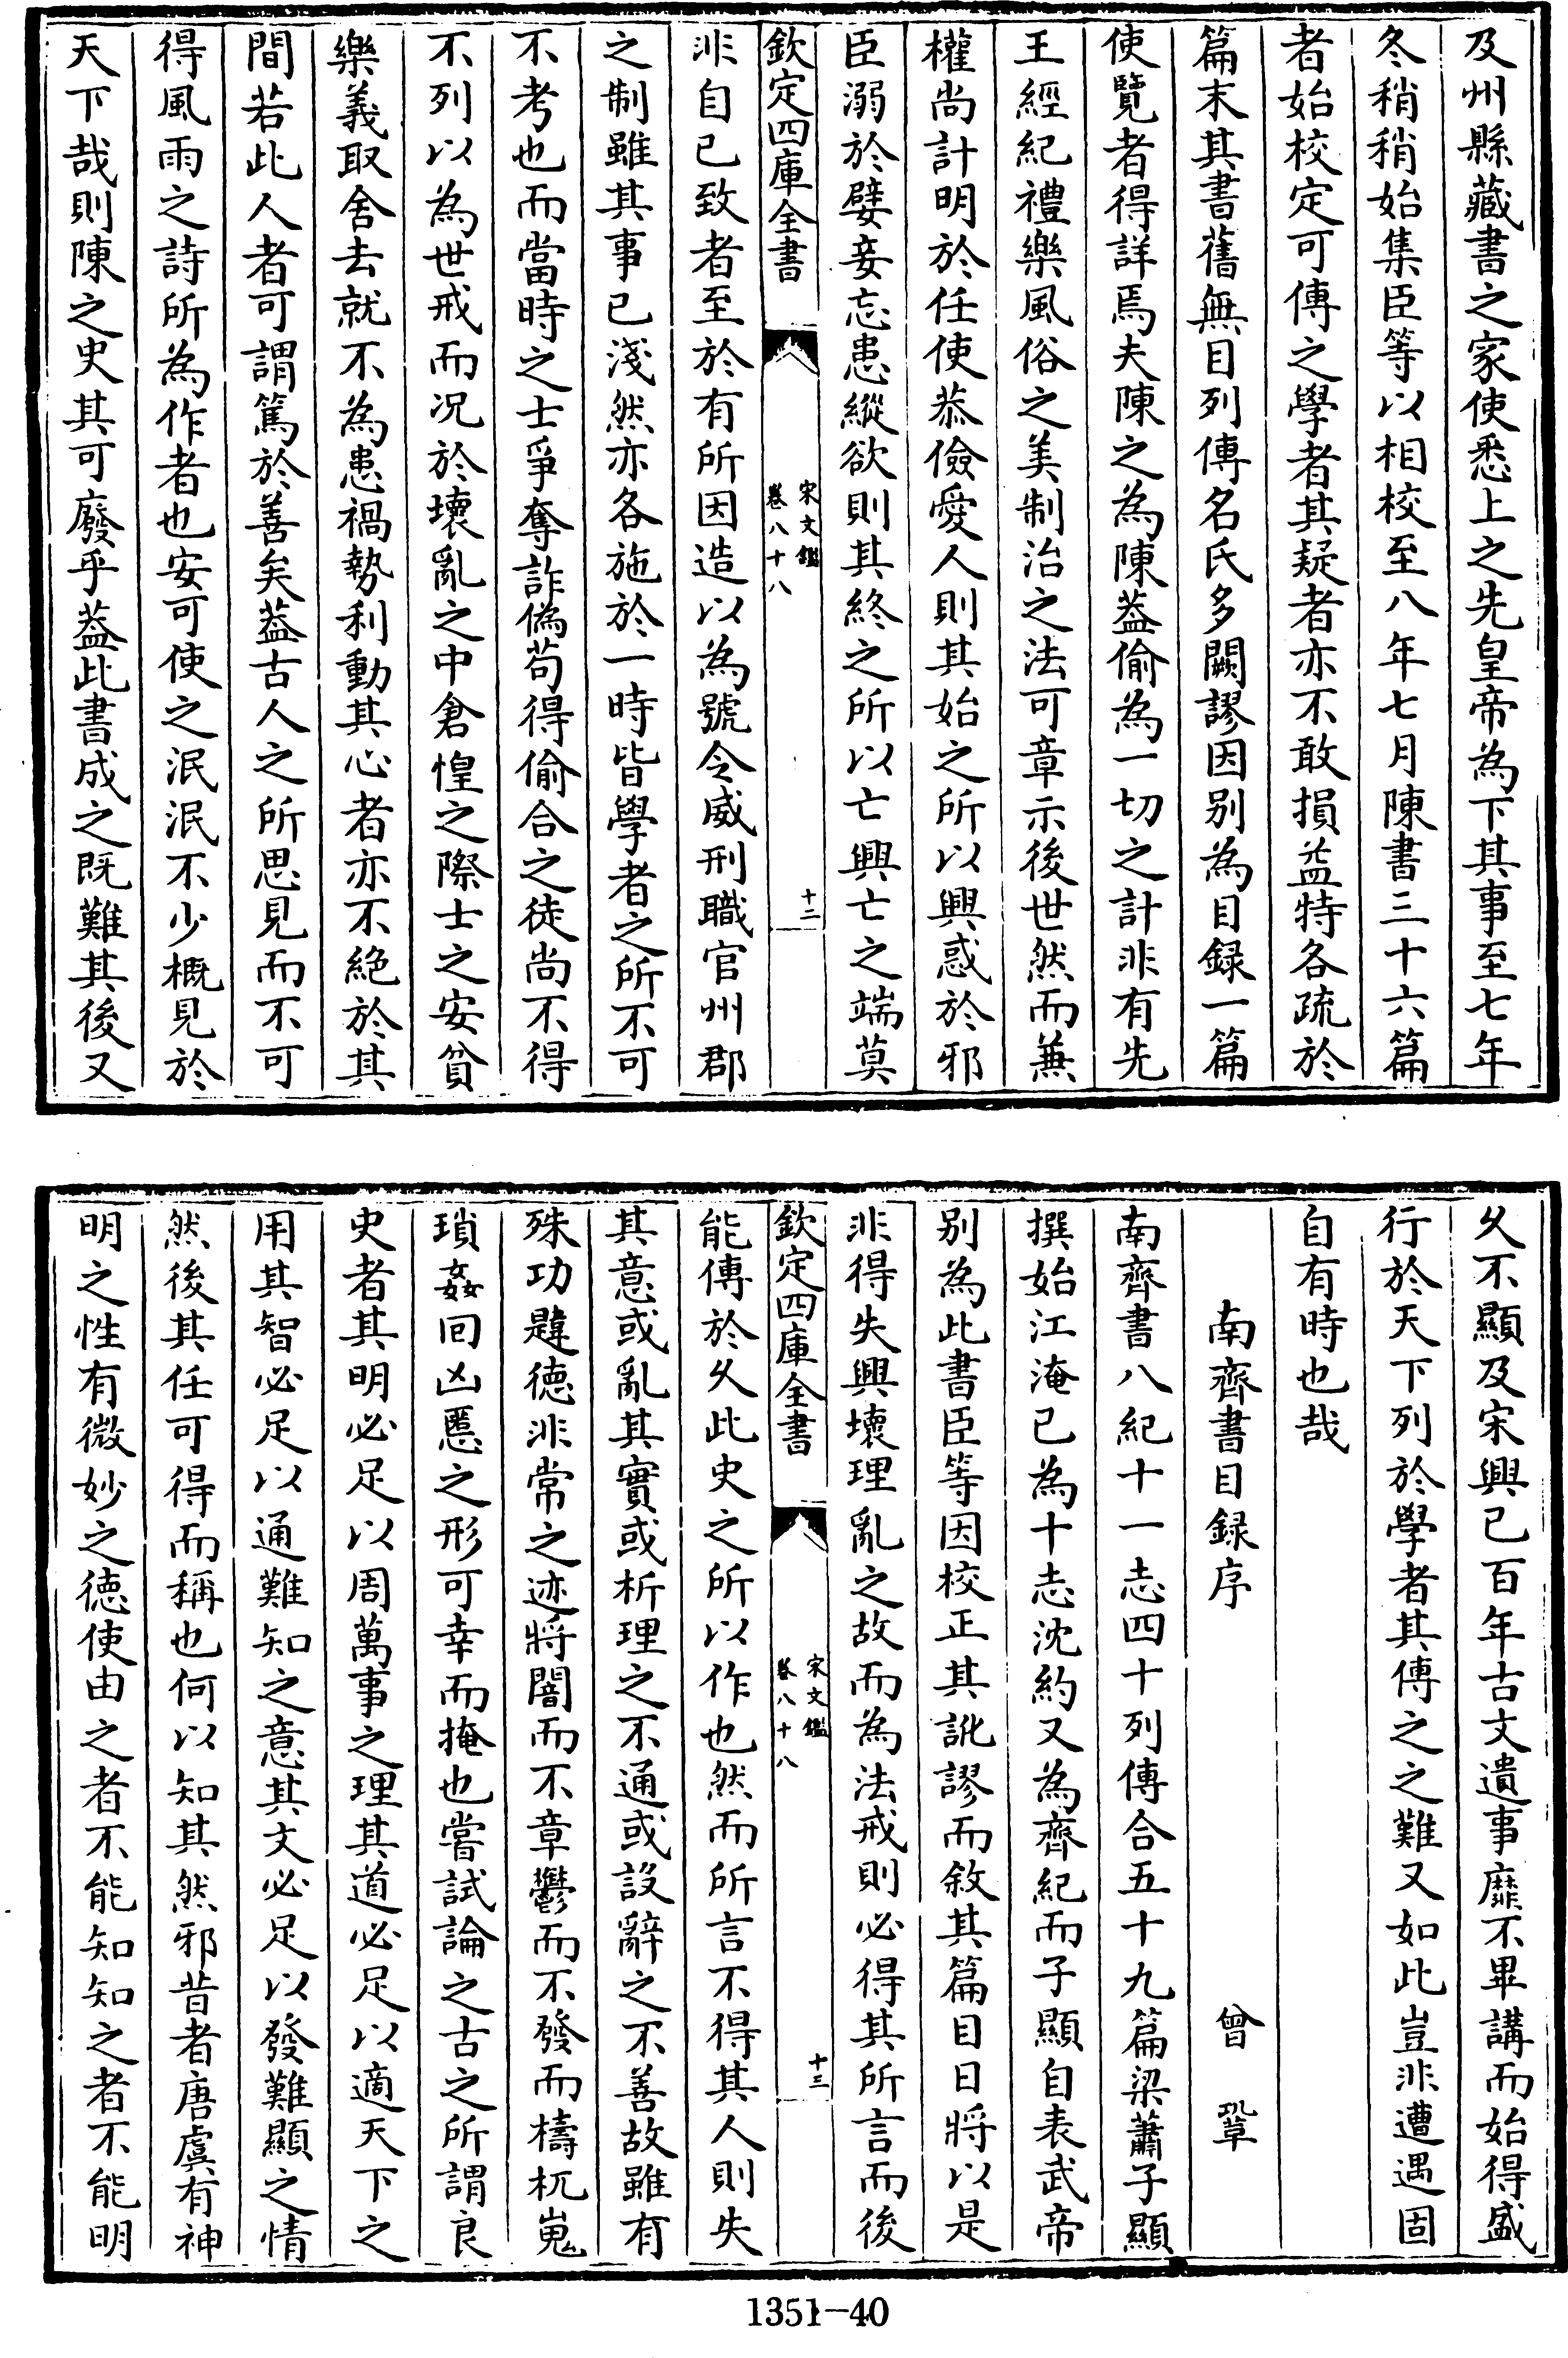 及州縣藏書之家使悉上之先皇帝為下其事至七年
冬稍稍始集臣等以相校至八年七月陳書三十六篇
者始校定可傳之學者其疑者亦不敢損益特各疏於
篇末其書舊無目列傳名氏多闕謬因别為目録一篇
使覽者得詳焉夫陳之為陳葢偷為一切之計非有先
王經紀禮樂風俗之美制治之法可章示後世然而兼
權尚計明於任使恭儉愛人則其始之所以興惑於邪
臣溺於嬖妾忘患縱欲則其終之所以亡興亡之端莫
欽定四庫全書
宋文鑑
卷八十八
十二
非自已致者至於有所因造以為號令威刑職官州郡
之制雖其事已淺然亦各施於一時皆學者之所不可
不考也而當時之士爭奪詐偽茍得偷合之徒尚不得
不列以為世戒而况於壞亂之中倉惶之際士之安貧
樂義取舍去就不為患禍勢利動其心者亦不絶於其
間若此人者可謂篤於善矣葢古人之所思見而不可
得風雨之詩所為作者也安可使之泯泯不少概見於
天下哉則陳之史其可廢乎葢此書成之既難其後又
乆不顯及宋興已百年古文遺事靡不畢講而始得盛
行於天下列於學者其傳之之難又如此豈非遭遇固
自有時也哉
南齊書目録序
曾鞏
南齊書八紀十一志四十列傳合五十九篇梁蕭子顯
撰始江淹已為十志沈約又為齊紀而子顯自表武帝
别為此書臣等因校正其訛謬而敘其篇目曰將以是
非得失興壞理亂之故而為法戒則必得其所言而後
欽定四庫全書
宋文鑑
卷八十八
十三
能傳於乆此史之所以作也然而所言不得其人則失
其意或亂其實或析理之不通或設辭之不善故雖有
殊功韙德非常之迹將闇而不章鬱而不發而檮杌嵬
瑣姦回凶慝之形可幸而掩也嘗試論之古之所謂良
史者其明必足以周萬事之理其道必足以適天下之
用其智必足以通難知之意其文必足以發難顯之情
然後其任可得而稱也何以知其然邪昔者唐虞有神
明之性有微妙之德使由之者不能知知之者不能明
1351-40